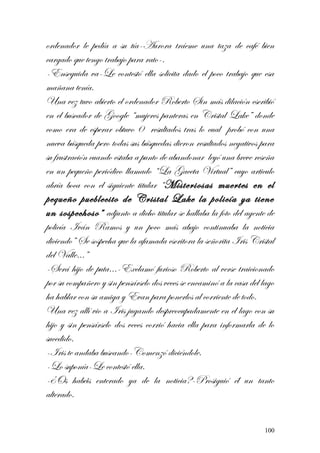 ordenador le pedía a su tía-Aurora tráeme una taza de café bien
cargado que tengo trabajo para rato-.
-Enseguida va-Le contestó ella solicita dado el poco trabajo que esa
mañana tenía.
Una vez tuvo abierto el ordenador Roberto Sin más dilación escribió
en el buscador de Google "mujeres panteras en Cristal Lake" donde
como era de esperar obtuvo 0 resultados tras lo cual probó con una
nueva búsqueda pero todas sus búsquedas dieron resultados negativos para
su frustración cuando estaba a punto de abandonar leyó una breve reseña
en un pequeño periódico llamado "La Gaceta Virtual" cuyo artículo
abría boca con el siguiente titular "Misteriosas muertes en el
pequeño pueblecito de Cristal Lake la policía ya tiene
un sospechoso" adjunto a dicho titular se hallaba la foto del agente de
policía Iván Ramos y un poco más abajo continuaba la noticia
diciendo "Se sospecha que la afamada escritora la señorita Iris Cristal
del Valle..."
-Será hijo de puta...-Exclamo furioso Roberto al verse traicionado
por su compañero y sin pensárselo dos veces se encaminó a la casa del lago
ha hablar con su amiga y Evan para ponerlos al corriente de todo.
Una vez allí vio a Iris jugando despreocupadamente en el lago con su
hijo y sin pensárselo dos veces corrió hacia ella para informarla de lo
sucedido.
-Iris te andaba buscando-Comenzó diciéndole.
-Lo suponía-Le contestó ella.
-¿Os habéis enterado ya de la noticia?-Prosiguió el un tanto
alterado.
100